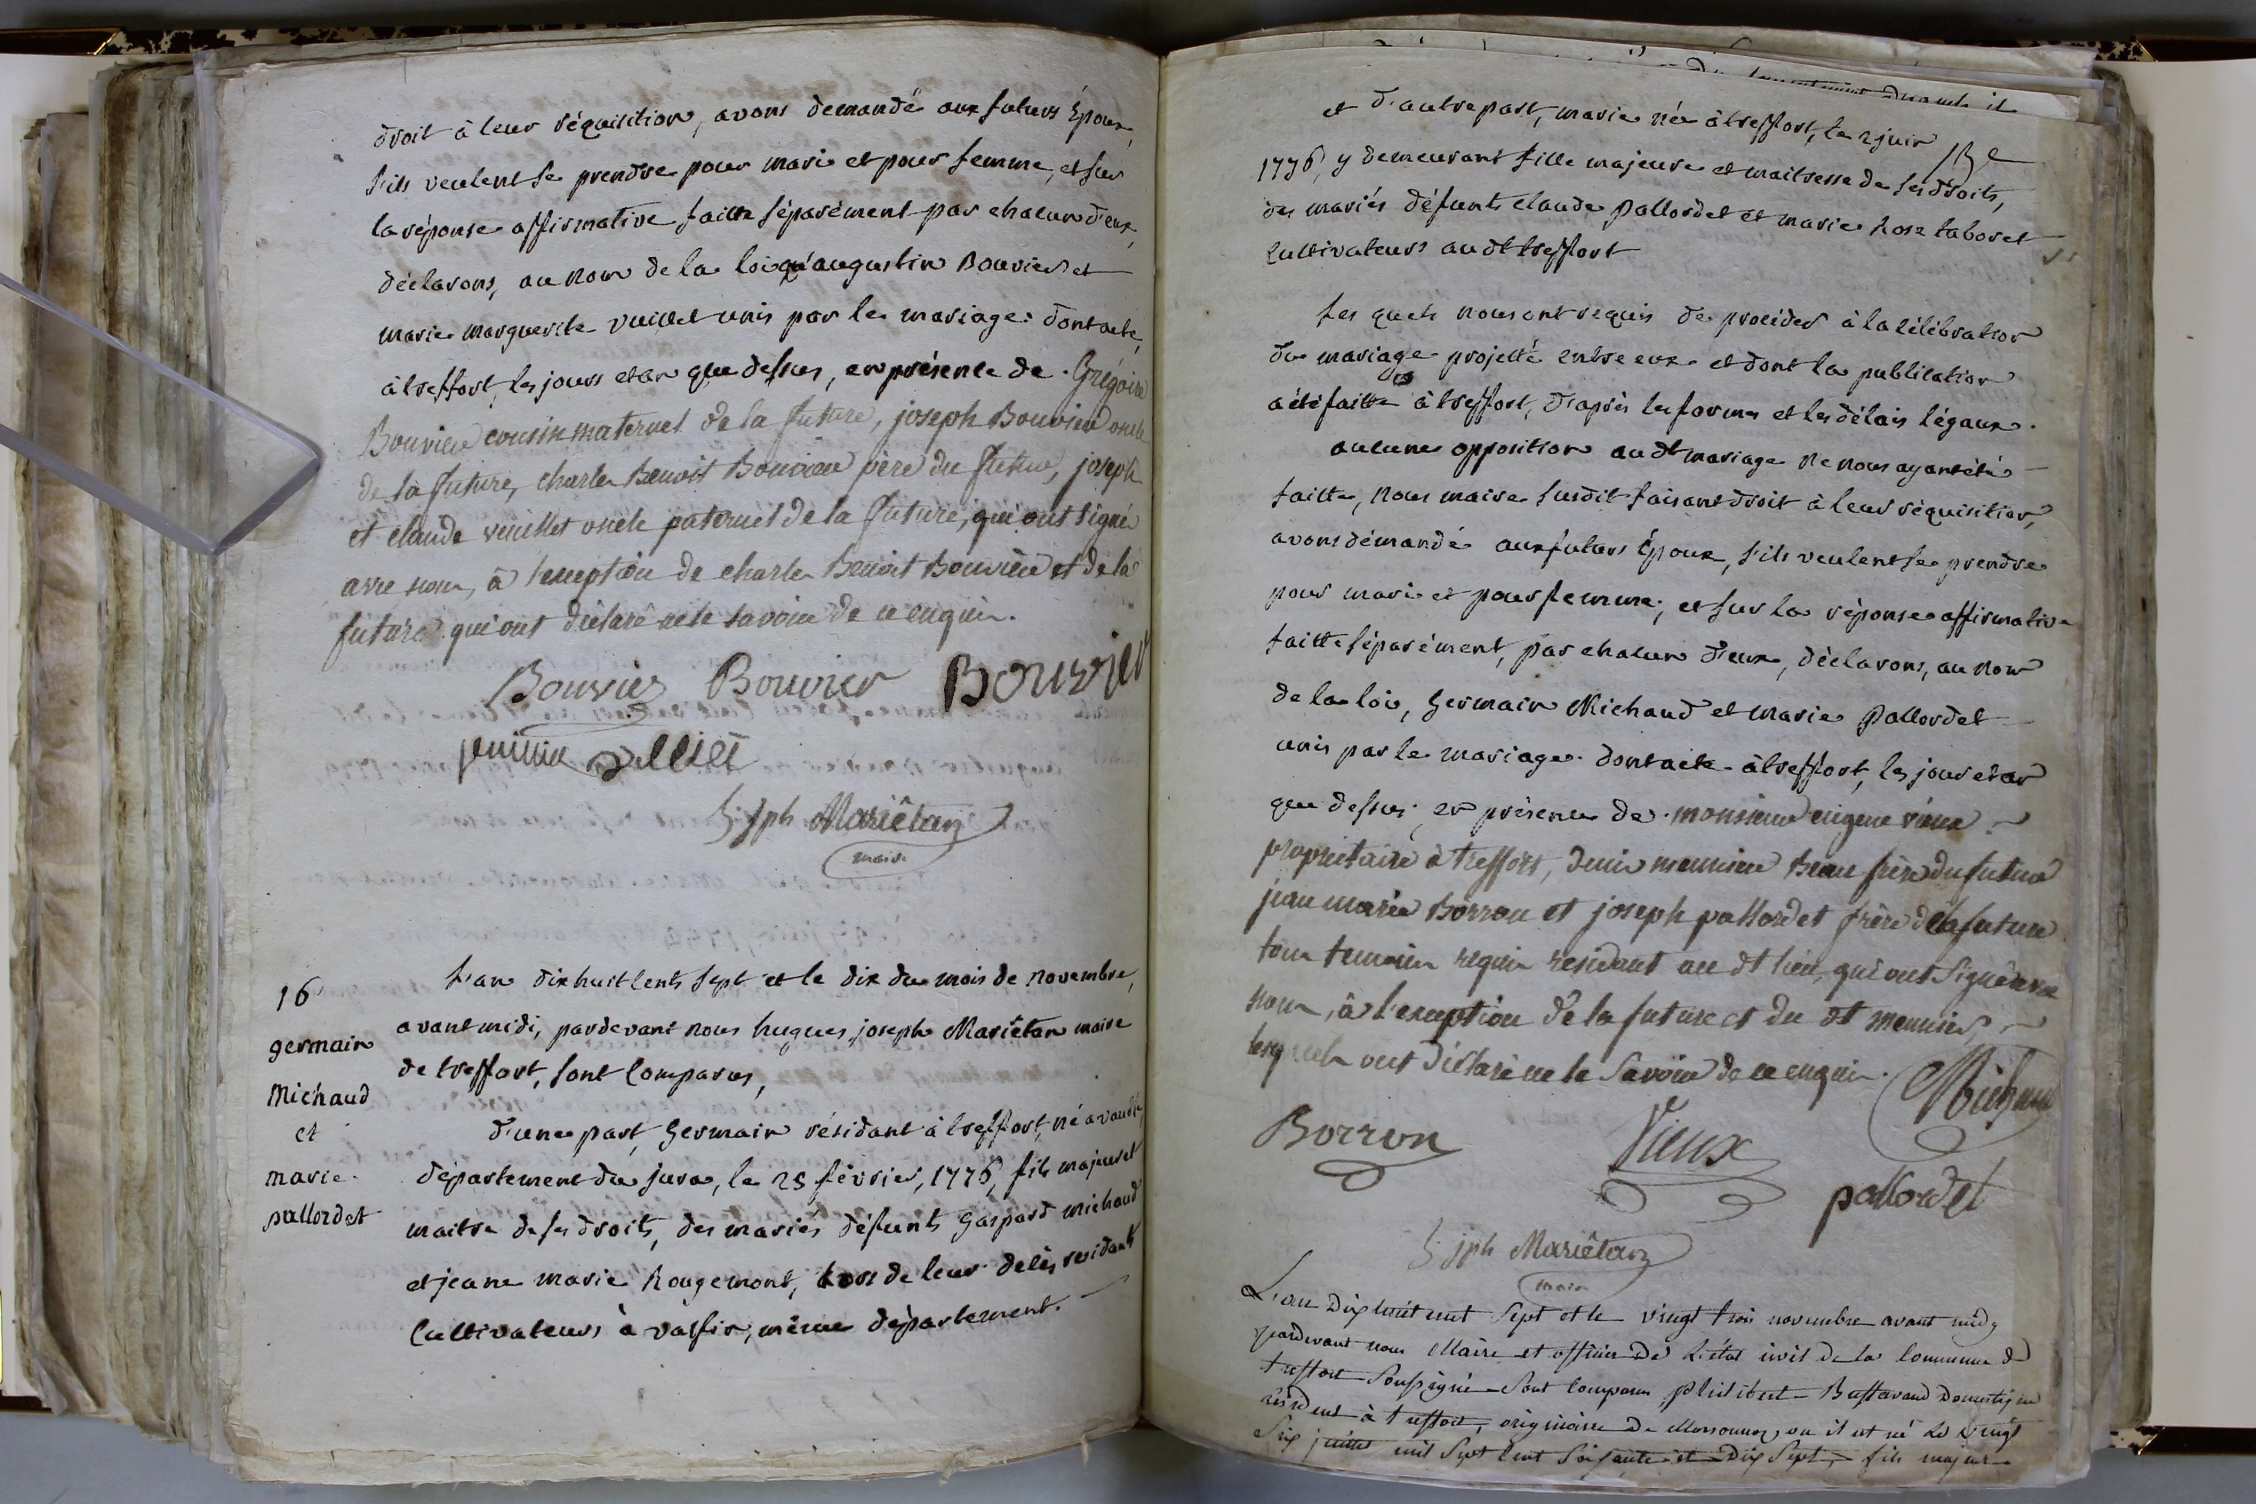 droit à leur réquisition, avons demandé aux futurs époux,
s'ils veulent se prendre pour mari et pour femme, et sur
la réponse affirmative faitte séparément par chacun d'eux,
déclarons, au nom de la loi qu'augustin Bouvier et
marie marguerite vuillet unis par le mariage. dont acte,
à treffort, les jours et an que dessus, en présence de Grégoire
Bouvier cousin maternel de la future, joseph Bouvier oncle
de la future, charle Benoit Bouvier père du futur, joseph
et claude vuillet oncle paternel de la future, qui ont signé
avec nous, à l'exception de charle Benoit Bouvier et de la
future qui ont déclaré ne le savoir de ce enquis.
Bouvier Bouvier Bouvier
vuillet
h. jph Mariêtan
maire
16
germain
Michaud
et
marie
pallordet
L'an dix huit cents sept et le dix du mois de novembre,
avant midi, pardevant nous hugues joseph Mariêtan maire
de treffort, sont comparus,
d'une part, Germain résidant à treffort, né a
département du jura, le 25 février, 1776, fils majeur et
maitre de ses droits, des mariés défunts Gaspard michaud
et jeane marie Rougemont, lors de leur délès residants
Cultivateurs à valfin, même département.
et d'autre part, marie née à treffort, le 2 juin
1776, y demeurant fille majeure et maitresse de ses droits,
des mariés défunts claude pallordet et marie Rose taboret
Cultivateurs au dt treffort
Les quels nous ont requis de procéder à la célébration
du mariage projetté entre eux et dont la publication
a été faitte à treffort, d'après les formes et les délais légaux.
aucune opposition au dt mariage ne nous ayant été
faitte, nous maire susdit faisant droit à leur réquisition,
avons démandé aux futurs époux, s'ils veulent se prendre
pour mari et pour femme; et sur la réponse affirmative
faitte séparément, par chacun d'eux, déclarons, au nom
de la loi, Germain Michaud et marie pallordet
unis par le mariage. dont acte à treffort, les jour et an
que dessus; en présence de monsieur eugene vieux
propriétaire à treffort, denis meunier Beau frère du futur
jean marie Borron et joseph pallordet frère de la future
tous temoins requis residant au dt lieu, qui ont signé avec
nous, à l'exception de la future et du dt meunier,
lesquels ont déclaré ne le savoir de ce enquis.
Michaud
Borron Vieux
pallordet
h. jph Mariêtan
maire
L'an dix huit cent sept et le vingt trois novembre avant midy
pardevant nous Maire et officier de l'état civil de la commune de
treffort soussigné sont comparus philibert Bastavand domestique
résident à treffort, originaire de où il est né le vingt
six juillet mil sept cent soixante et dix sept, fils majeur